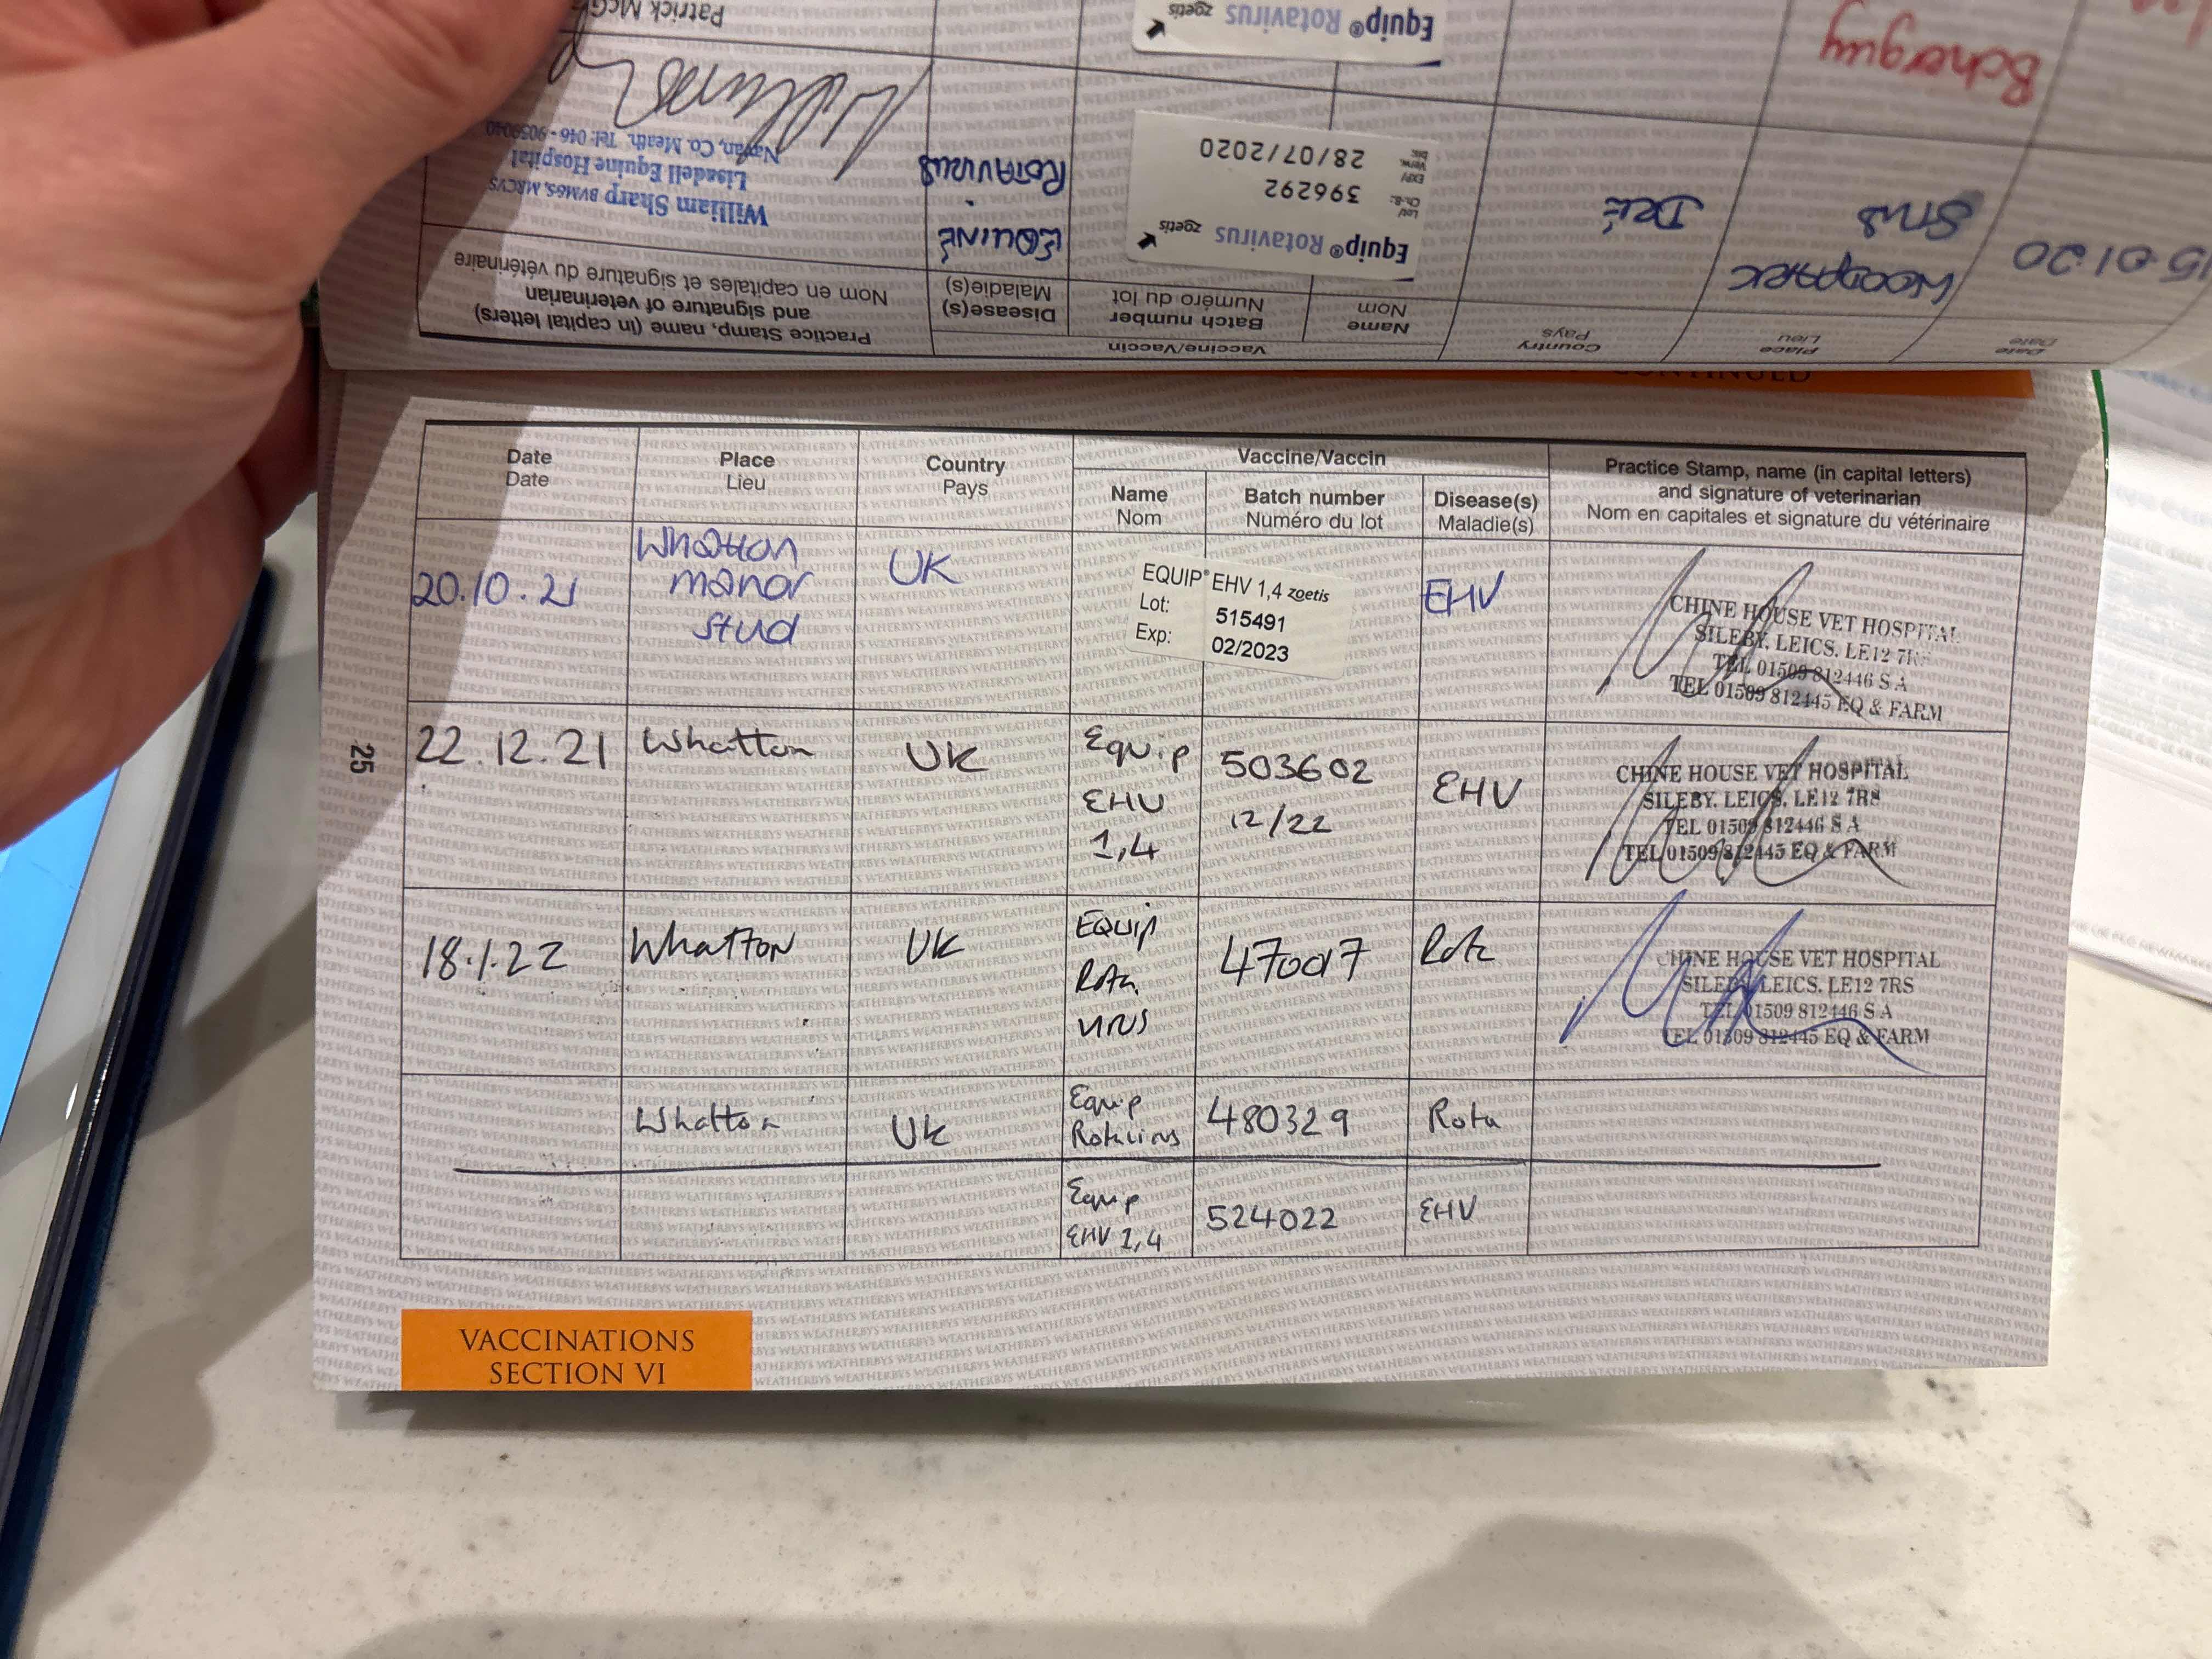 Patrick McG
William Sharp BVM&S, MRCVS
Lisadell Equine Hospital
Navan, Co. Meath. Tel: 046 - 9059040
Equip® Rotavirus zoetis
Bchorguy
15.01.20
WOODPARK
STUD
IRE
Equip® Rotavirus zoetis
Lot/
Ch.-B.: 396292
EXP/
Verw.
bis: 28/07/2020
EQUINE
ROTAVIRUS
Date
Date
Place
Lieu
Country
Pays
Vaccine/Vaccin
Name
Nom
Batch number
Numéro du lot
Disease(s)
Maladie(s)
Practice Stamp, name (in capital letters)
and signature of veterinarian
Nom en capitales et signature du vétérinaire
CONTINUED
Date
Date
Place
Lieu
Country
Pays
Vaccine/Vaccin
Name
Nom
Batch number
Numéro du lot
Disease(s)
Maladie(s)
Practice Stamp, name (in capital letters)
and signature of veterinarian
Nom en capitales et signature du vétérinaire
20.10.21
Whatton
manor
stud
UK
EQUIP® EHV 1,4 zoetis
Lot: 515491
Exp: 02/2023
EHV
CHINE HOUSE VET HOSPITAL
SILEBY, LEICS. LE12 7RS
TEL 01509 812446 S A
TEL 01509 812445 EQ & FARM
22.12.21
Whatton
UK
Equip
EHV
1,4
503602
12/22
EHV
CHINE HOUSE VET HOSPITAL
SILEBY, LEICS. LE12 7RS
TEL 01509 812446 S A
TEL 01509 812445 EQ & FARM
18.1.22
Whatton
UK
Equip
Rota
virus
470017
Rota
CHINE HOUSE VET HOSPITAL
SILEBY, LEICS. LE12 7RS
TEL 01509 812446 S A
TEL 01509 812445 EQ & FARM
Whatton
UK
Equip
Rotavirus
480329
Rota
Equip
EHV 1,4
524022
EHV
25
VACCINATIONS
SECTION VI